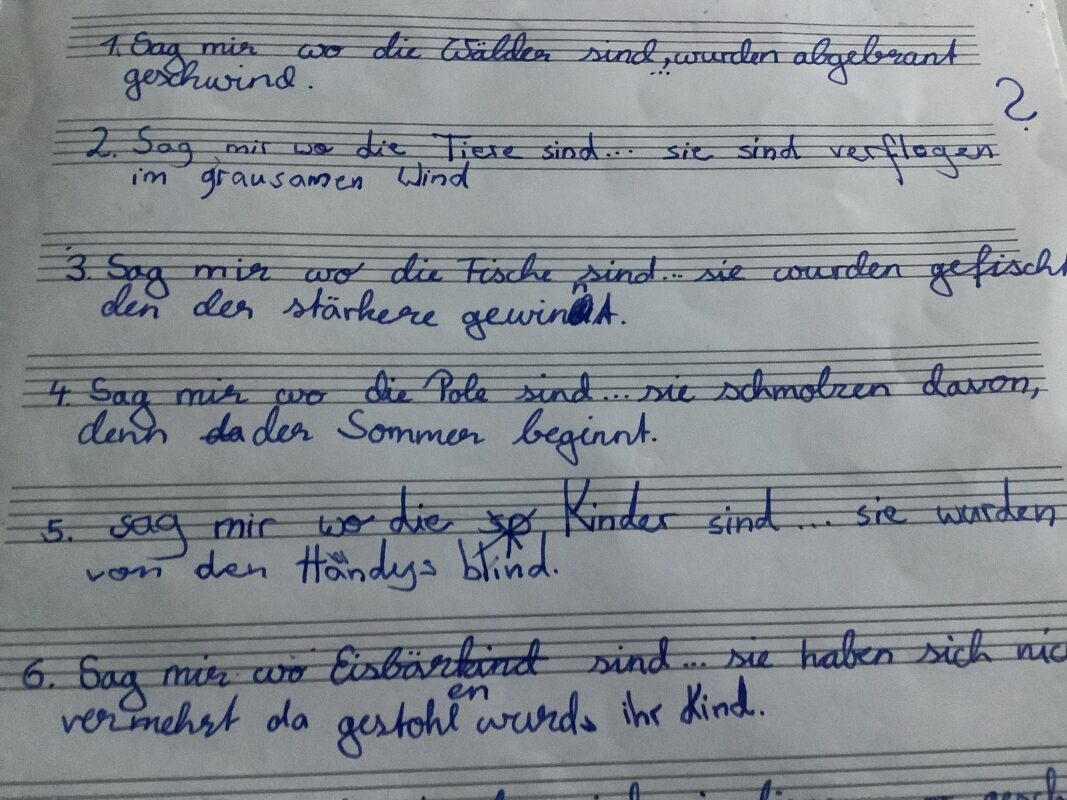 1. Sag mir wo die Wälder sind, wurden abgebrant
geschwind.
?
2. Sag mir wo die Tiere sind... sie sind verflogen
im grausamen Wind
3. Sag mir wo die Fische sind... sie wurden gefischt
den der stärkere gewinnt.
4. Sag mir wo die Pole sind... sie schmolzen davon,
denn der Sommer beginnt.
5. sag mir wo die Kinder sind... sie wurden
von den Händys blind.
6. Sag mir wo Eisbärkind sind... sie haben sich nic
vermehrt da gestohlen wurds ihr Kind.